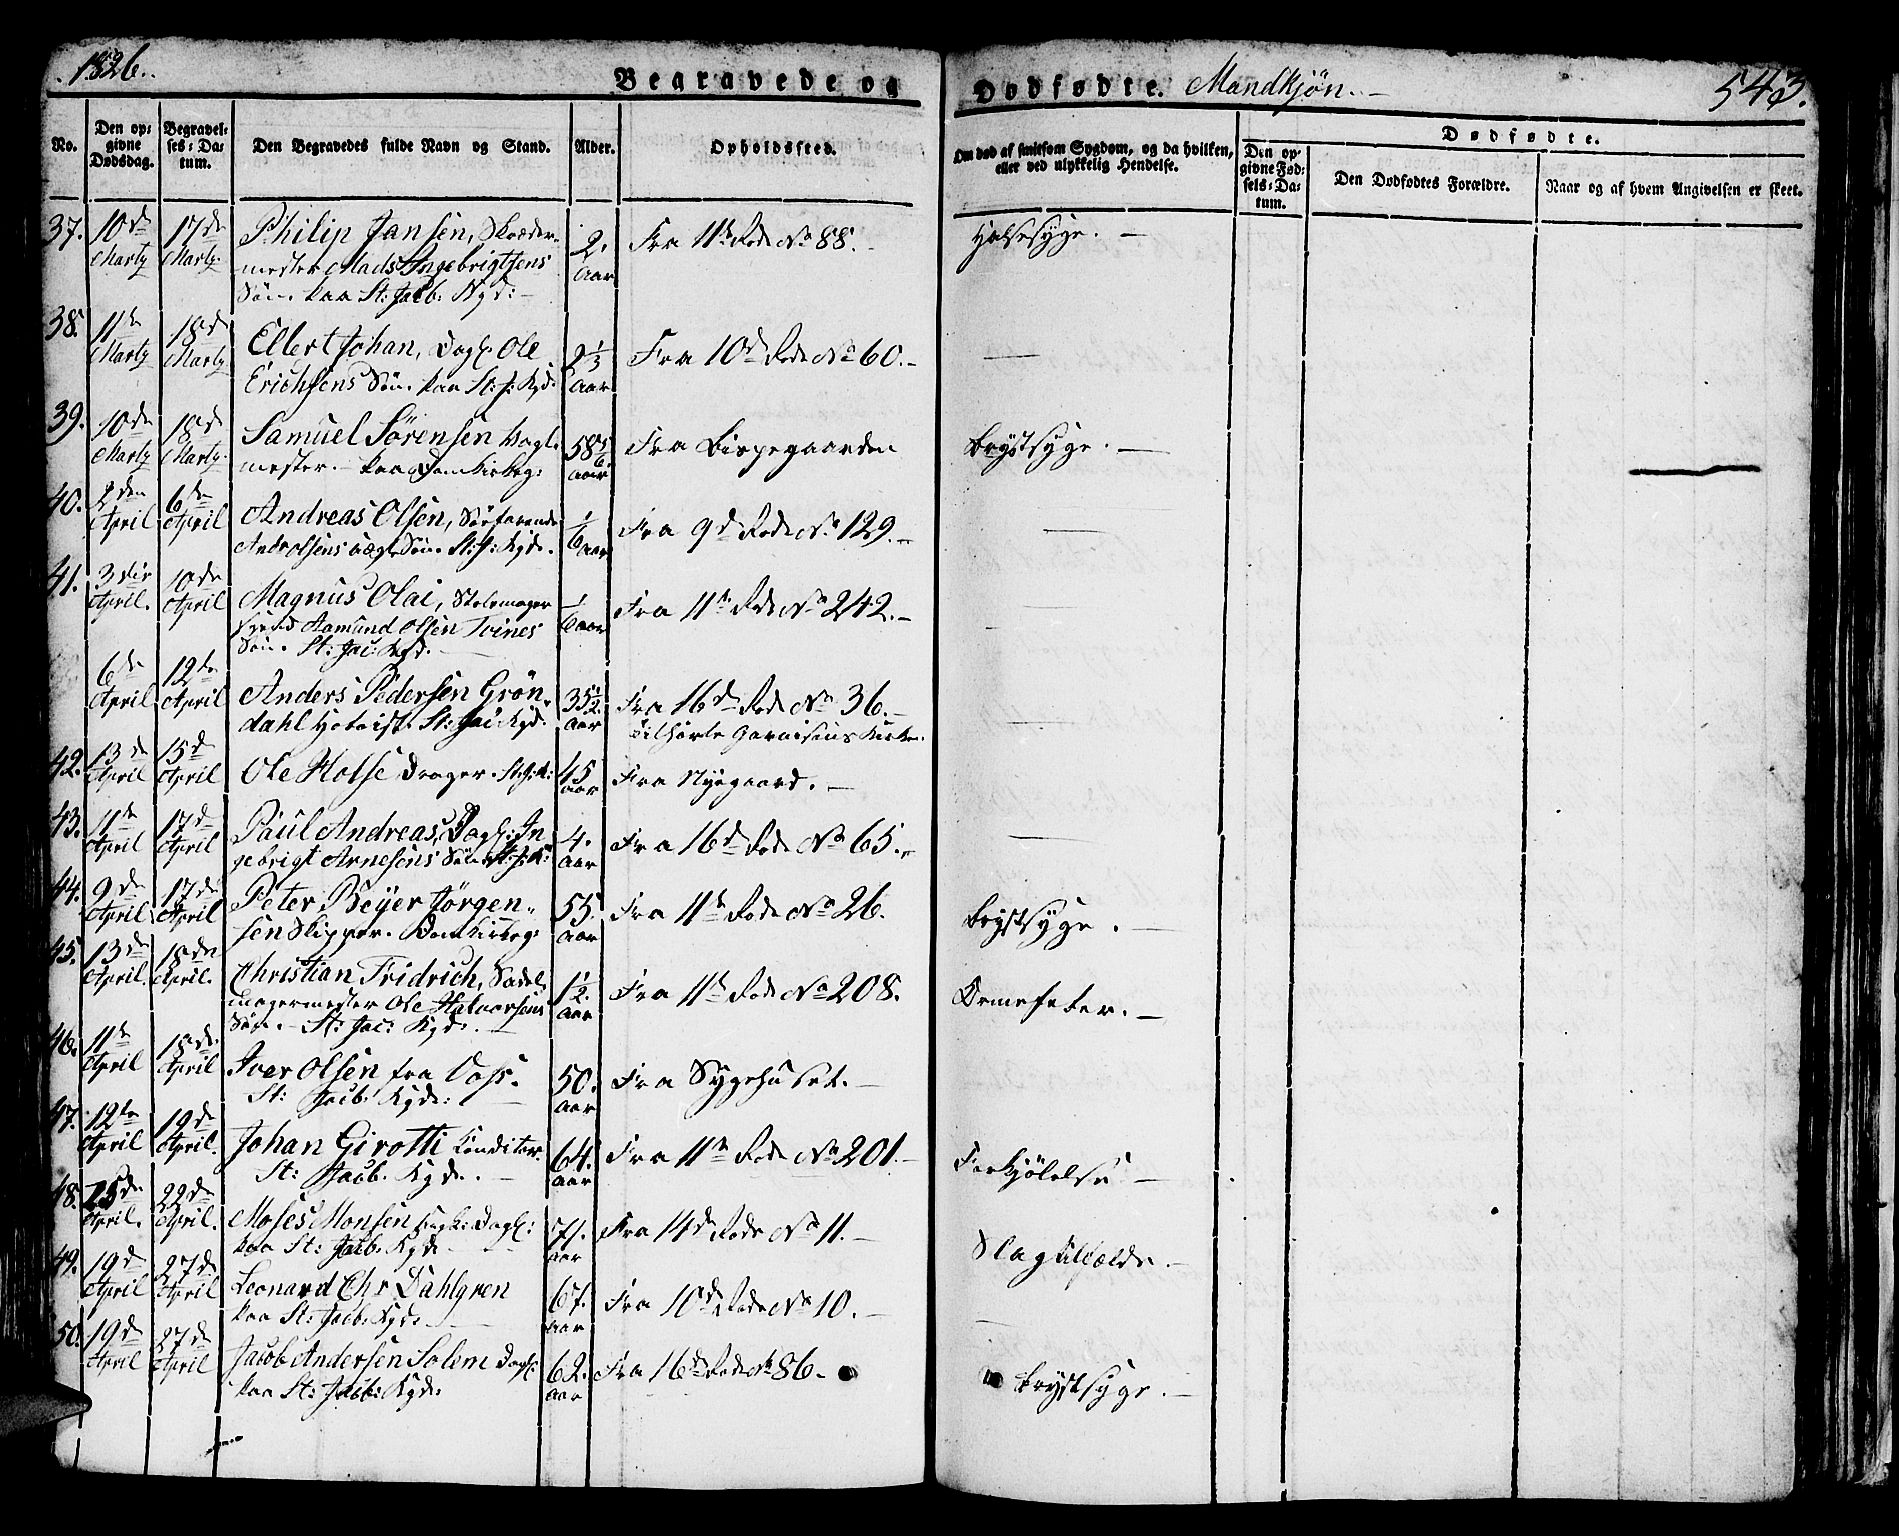 1826.
Begravede og
Dødfødte. Mandkjøn.
543.
No.
Den opgivne Dødsdag.
Begravelses-Datum.
Den Begravedes fulde Navn og Stand.
Alder.
Opholdssted.
Om død af smitsom Sygdom, og da hvilken,
eller ved ulykkelig Hendelse.
Dødfødte.
Den opgivne Fødsels-Datum.
Den Dødfødtes Forældre.
Naar og af hvem Angivelsen er skeet.
37. 10de 17de Philip Jansen, Skræder- 2. Fra 11te Rode No 88. Halssyge.
Marty Marty mester Mads Ingebrigtsens Aar
Søn. paa St: Jacb. Kgd:
38. 11te 18de Ellert Johan, Dagl. Ole 2 1/3 Fra 10de Rode No 60.
Marty Marty Erichsens Søn. paa St: J: Kgd: Aar
39. 10de 18de Samuel Sørensen 58 5/6 Fra Bispegaarden Brystsyge.
Marty Marty mester. paa Domkirkeg: Aar
40. 2den 6te Andreas Olsen, Søefarende 1/6 Fra 9de Rode No 129.
April April And: Olsens uægt. Søn. St: J: Kgd. Aar
41. 3die 10de Magnus Olai, Stolemager 1/6 Fra 11te Rode No 242.
April. April Svend Aamund Olsen Tvines Aar
Søn. St: Jac: Kgd.
6te 12te Anders Pedersen Grøn- 35 1/2 Fra 16de Rode No 36.
April April dahl St: Jac: Kgd. Aar Tilhørte Garnisons Kirken.
42. 13de 15de Ole Holse Drager. St: J: K: 45 Fra Nyegaard.
April April Aar
43. 11te 17de Paul Andreas, Dagl: In 4. Fra 16de Rode No 65.
April April gebrigt Arnesens Søn St: J: K: Aar
44. 9de 17de Peter Beyer Jørgen- 55. Fra 11te Rode No 26. Brystsyge.
April April sen Skipper. Domkirkeg: Aar
45. 13de 18de Christian Fridrich, Sadel- 1 1/2. Fra 11te Rode No 208. Ormefeber.
April. April. magermester Ole Halvorsens Aar
Søn. St: Jac: Kgd.
46. 11te 18de Iver Olsen fra Voss. 50. Fra Sygehuset.
April April St: Jacb. Kgd: Aar
47. 12te 19de Johan Girotti Konditor. 64. Fra 11te Rode No 201. Forkjølelse
April April. St: Jacb. Kgd. Aar
48. 15de 22de Moses Monsen Dagl: 71. Fra 14de Rode No 11. Slagtilfælde.
April. April. paa St: Jacb. Kgd Aar
49. 19de 27de Leonard Chr Dahlgren 67. Fra 10de Rode No 10.
April April paa St: Jacb. Kgd. Aar
50. 19de 27de Jacob Andersen Solem Dagl: 62. Fra 16de Rode No 86. Brystsyge.
April April paa St: Jacb: Kgd: Aar